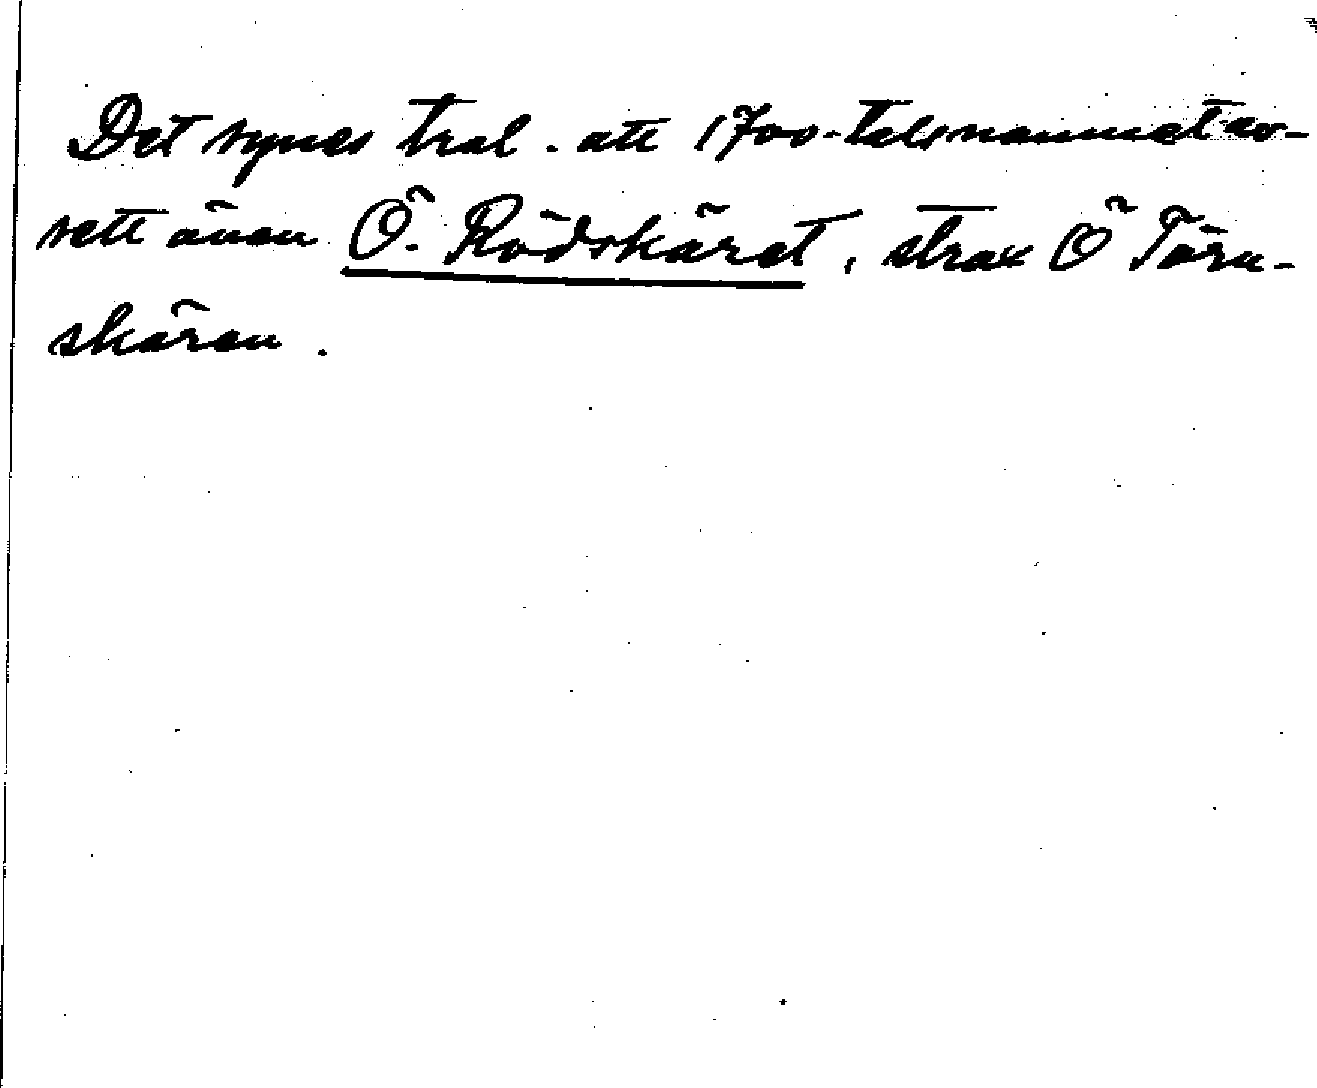 Det synes trol. att 1700-talsnamnet av-
sett även Ö. Rödskäret, strax Ö Törn-
skären.